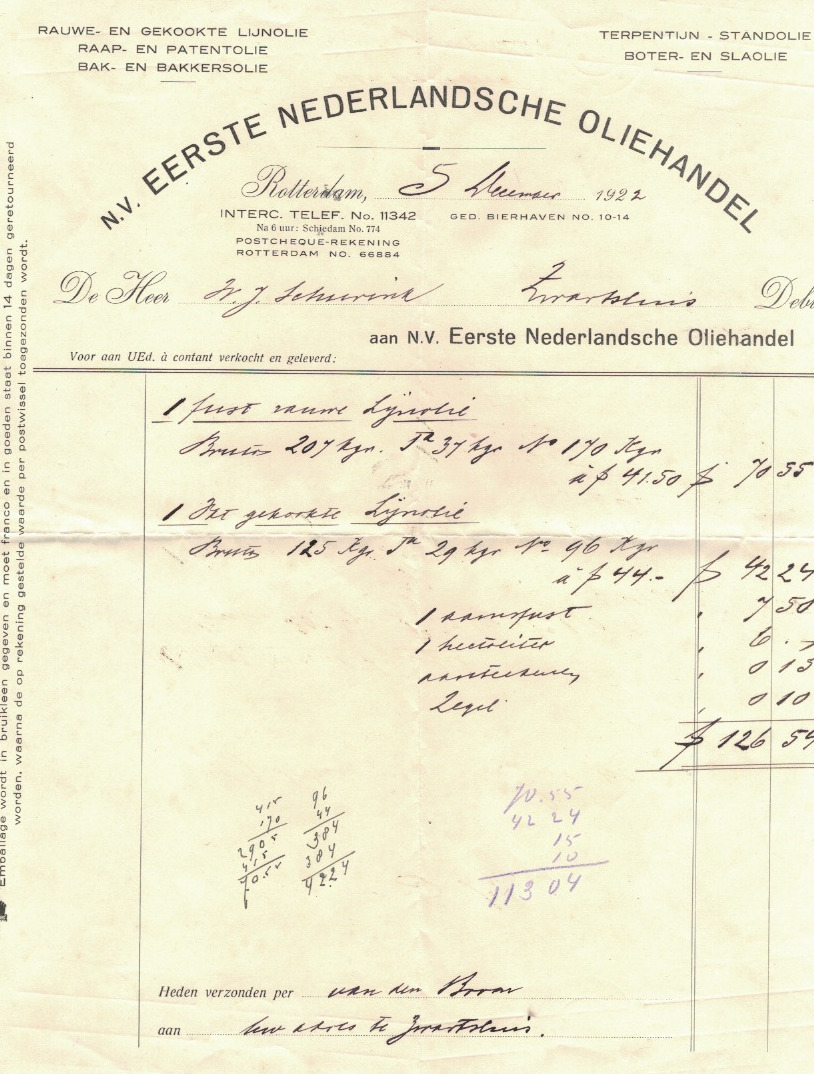 RAUWE- EN GEKOOKTE LIJNOLIE
RAAP- EN PATENTOLIE
BAK- EN BAKKERSOLIE
TERPENTIJN - STANDOLIE
BOTER- EN SLAOLIE
N.V. EERSTE NEDERLANDSCHE OLIEHANDEL
Rotterdam, 5 December 1922
INTERC. TELEF. No. 11342
GED. BIERHAVEN NO. 10-14
Na 6 uur: Schiedam No. 774
POSTCHEQUE-REKENING
ROTTERDAM NO. 66884
De Heer W. J. Schuurink Zwartsluis Deb
aan N.V. Eerste Nederlandsche Oliehandel
Voor aan UEd. à contant verkocht en geleverd:
1 fust rauwe Lijnolie
Bruto 207 kgr. Ta 37 kgr No 170 Kgr
à f 41.50 f 70 55
1 Fat gekookte Lijnolie
Bruto 125 Kgr. Ta 29 kgr No 96 Kgr
à f 44.- f 42 24
1 aamsfust " 7 50
1 hectoliter " 6 . -
aanteekenen " 0 15
Zegel " 0 10
f 126 54
415
170
2905
415
7055
96
44
384
384
4224
70.55
42 24
15
10
113 04
Heden verzonden per van den Broom
aan uw adres te Zwartsluis.
Emballage wordt in bruikleen gegeven en moet franco en in goeden staat binnen 14 dagen geretourneerd
worden, waarna de op rekening gestelde waarde per postwissel toegezonden wordt.